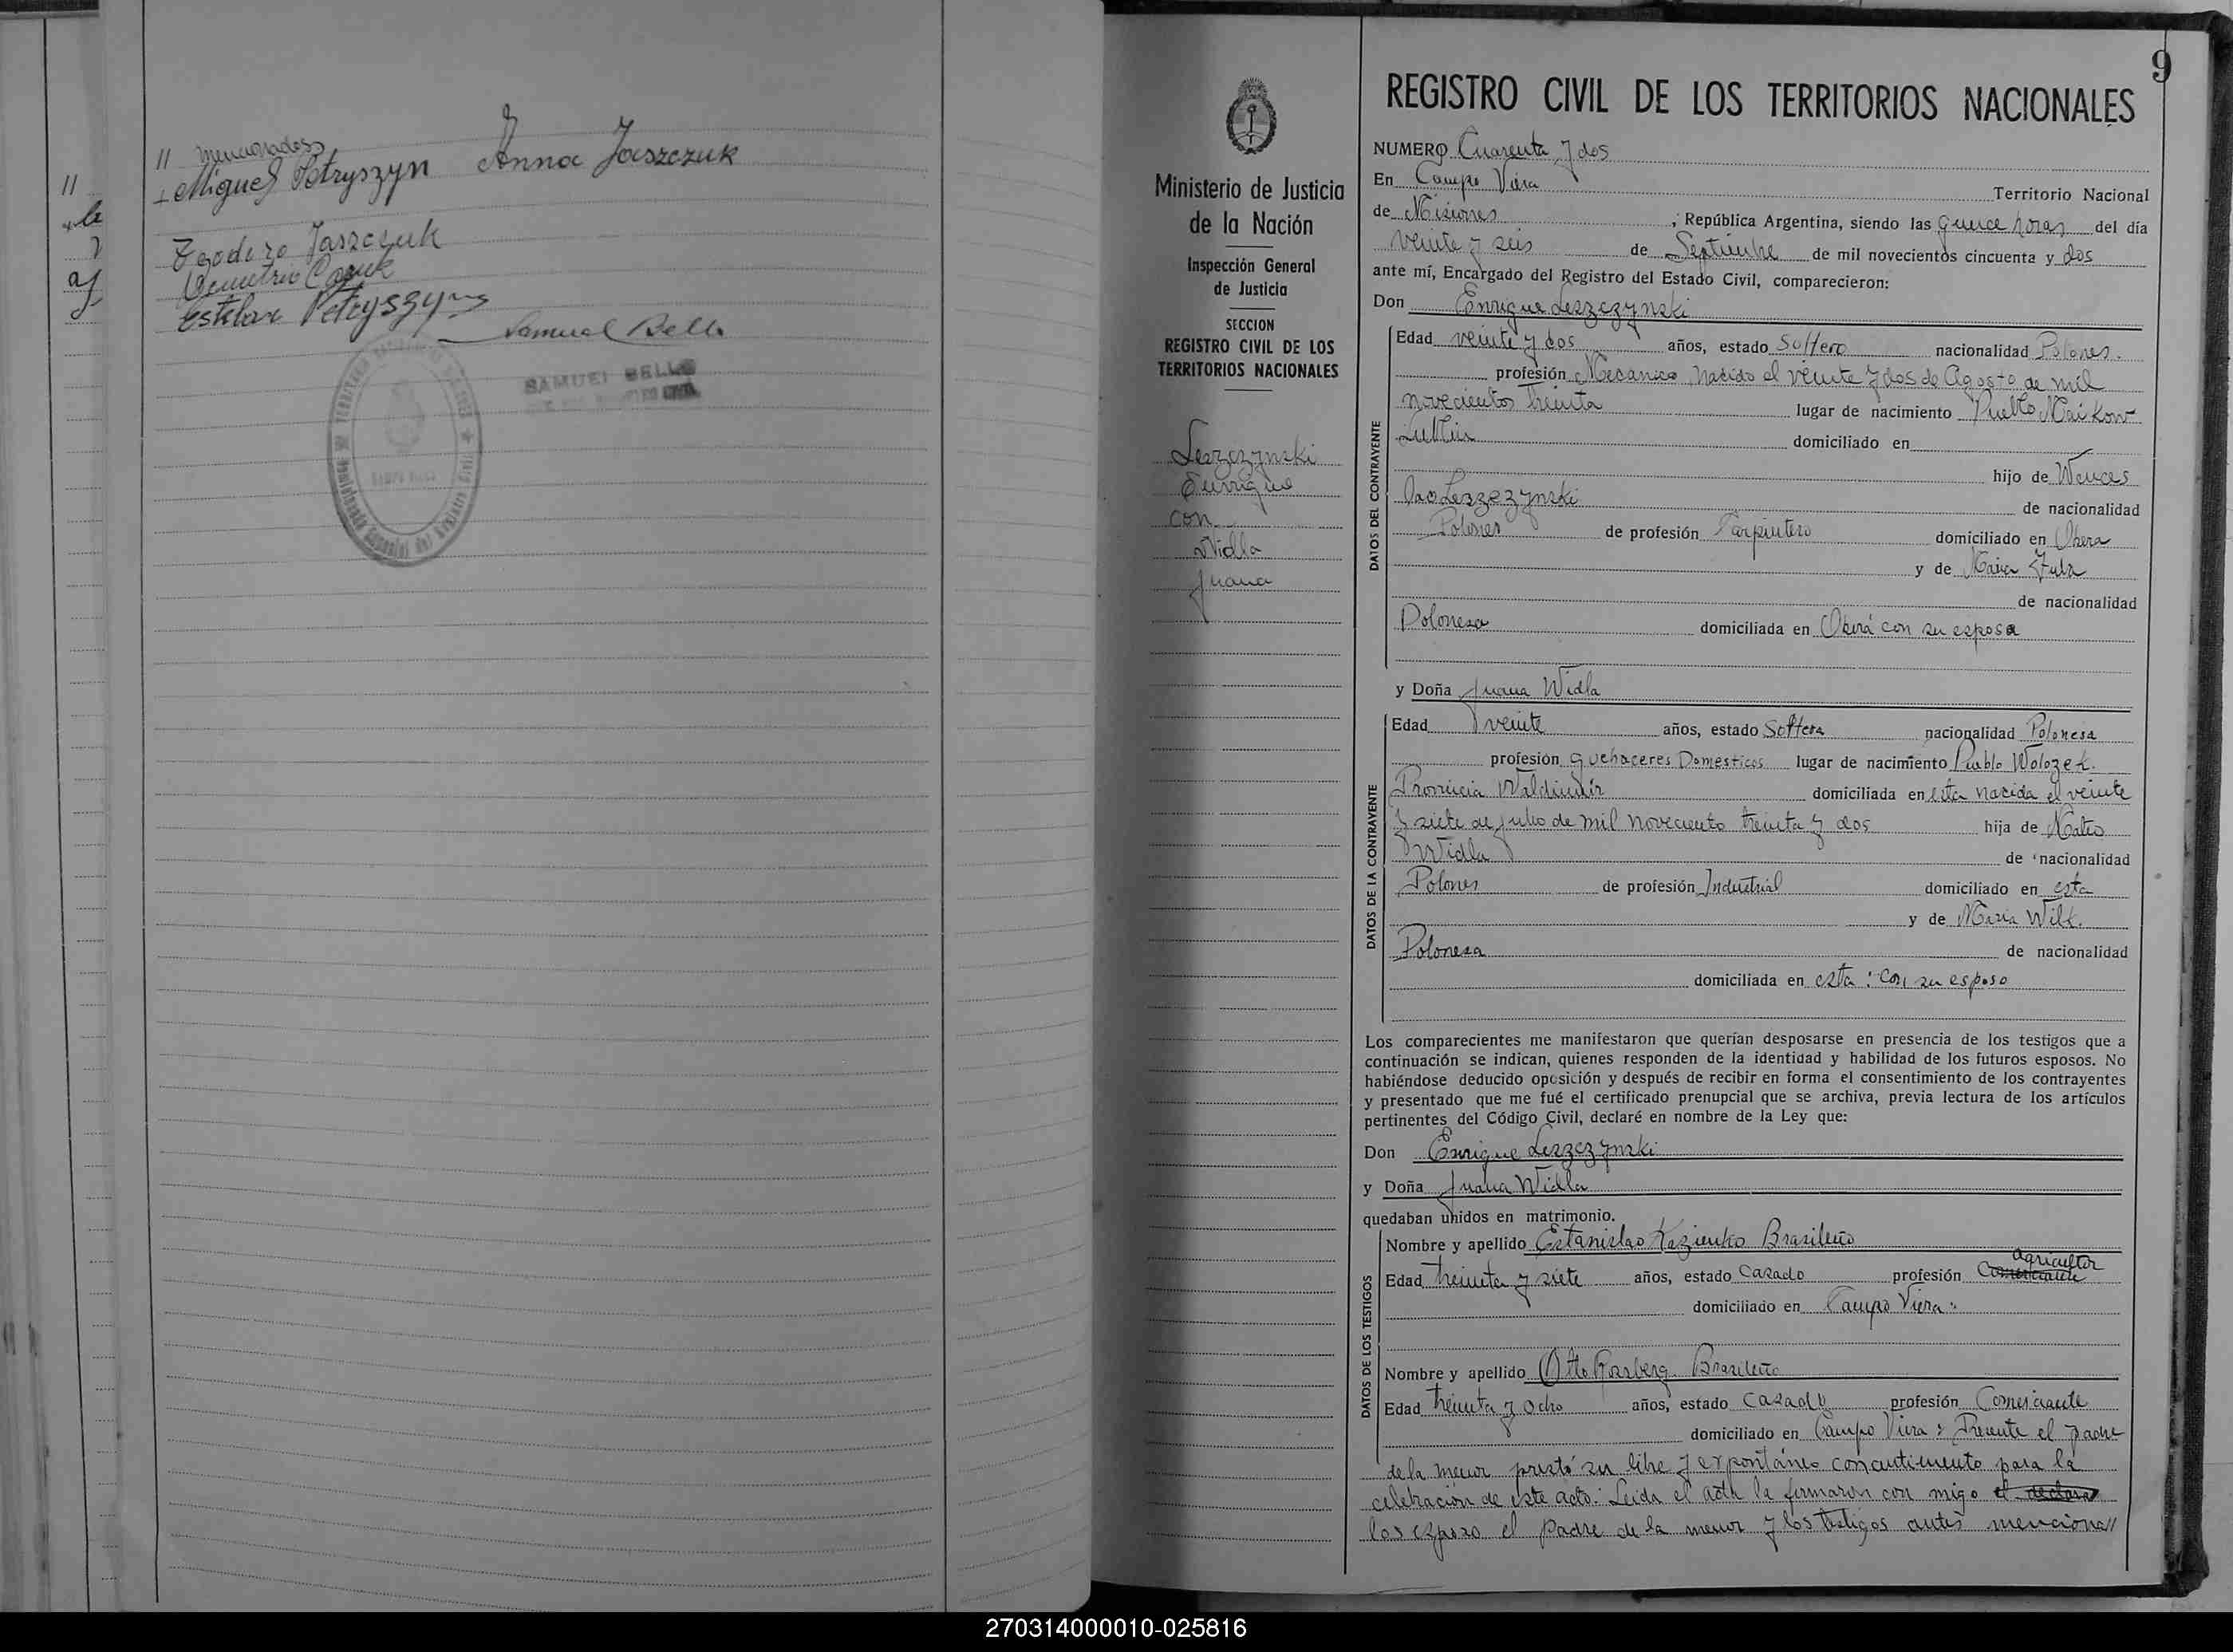 // mencionados
Miguel Petryszyn Anna Jaszczuk
Teodoro Jaszczuk
Demetrio
Estelan Petryszyn
Samuel Bello
SAMUEL BELLO
9
Ministerio de Justicia
de la Nación
Inspección General
de Justicia
SECCION
REGISTRO CIVIL DE LOS
TERRITORIOS NACIONALES
Leszczynski
Enrique
con
Widla
Juana
REGISTRO CIVIL DE LOS TERRITORIOS NACIONALES
NUMERO Cuarenta y dos
En Campo Viera Territorio Nacional
de Misiones, República Argentina, siendo las quince horas del día
veinte y seis de Septiembre de mil novecientos cincuenta y dos
ante mí, Encargado del Registro del Estado Civil, comparecieron:
Don Enrique Leszczynski
DATOS DEL CONTRAYENTE
Edad veinte y dos años, estado Soltero nacionalidad Polones.
profesión Mecanico nacido el veinte y dos de Agosto de mil
novecientos treinta lugar de nacimiento Pueblo Maikow
Lublin domiciliado en
hijo de Wences
lao Leszczynski de nacionalidad
Polones de profesión Carpintero domiciliado en Obera
y de Maria
de nacionalidad
Polonesa domiciliada en Oberá con su esposa
y Doña Juana Widla
DATOS DE LA CONTRAYENTE
Edad veinte años, estado Soltera nacionalidad Polonesa
profesión quehaceres Domesticos lugar de nacimiento Pueblo Wolozek.
Provincia Waldimir domiciliada en esta nacida el veinte
y siete de julio de mil noveciento treinta y dos hija de Mateo
Widla de nacionalidad
Polones de profesión Industrial domiciliado en esta
y de Maria Wilk.
Polonesa de nacionalidad
domiciliada en esta: con su esposo
Los comparecientes me manifestaron que querían desposarse en presencia de los testigos que a
continuación se indican, quienes responden de la identidad y habilidad de los futuros esposos. No
habiéndose deducido oposición y después de recibir en forma el consentimiento de los contrayentes
y presentado que me fué el certificado prenupcial que se archiva, previa lectura de los artículos
pertinentes del Código Civil, declaré en nombre de la Ley que:
Don Enrique Leszczynski
y Doña Juana Widla
quedaban unidos en matrimonio.
DATOS DE LOS TESTIGOS
Nombre y apellido Estanislao Kezienko Brasileño
agricultor
Edad treinta y siete años, estado casado profesión Comerciante
domiciliado en Campo Viera:
Nombre y apellido Otto Rosberg Brasileño
Edad treinta y ocho años, estado casado profesión Comerciante
domiciliado en Campo Viera: Presente el padre
de la menor prestó su libre y expontáneo consentimiento para la
celebración de este acto. Leida el acta la firmaron con migo el declara
los esposo el padre de la menor y los testigos antes menciona//
270314000010-025816